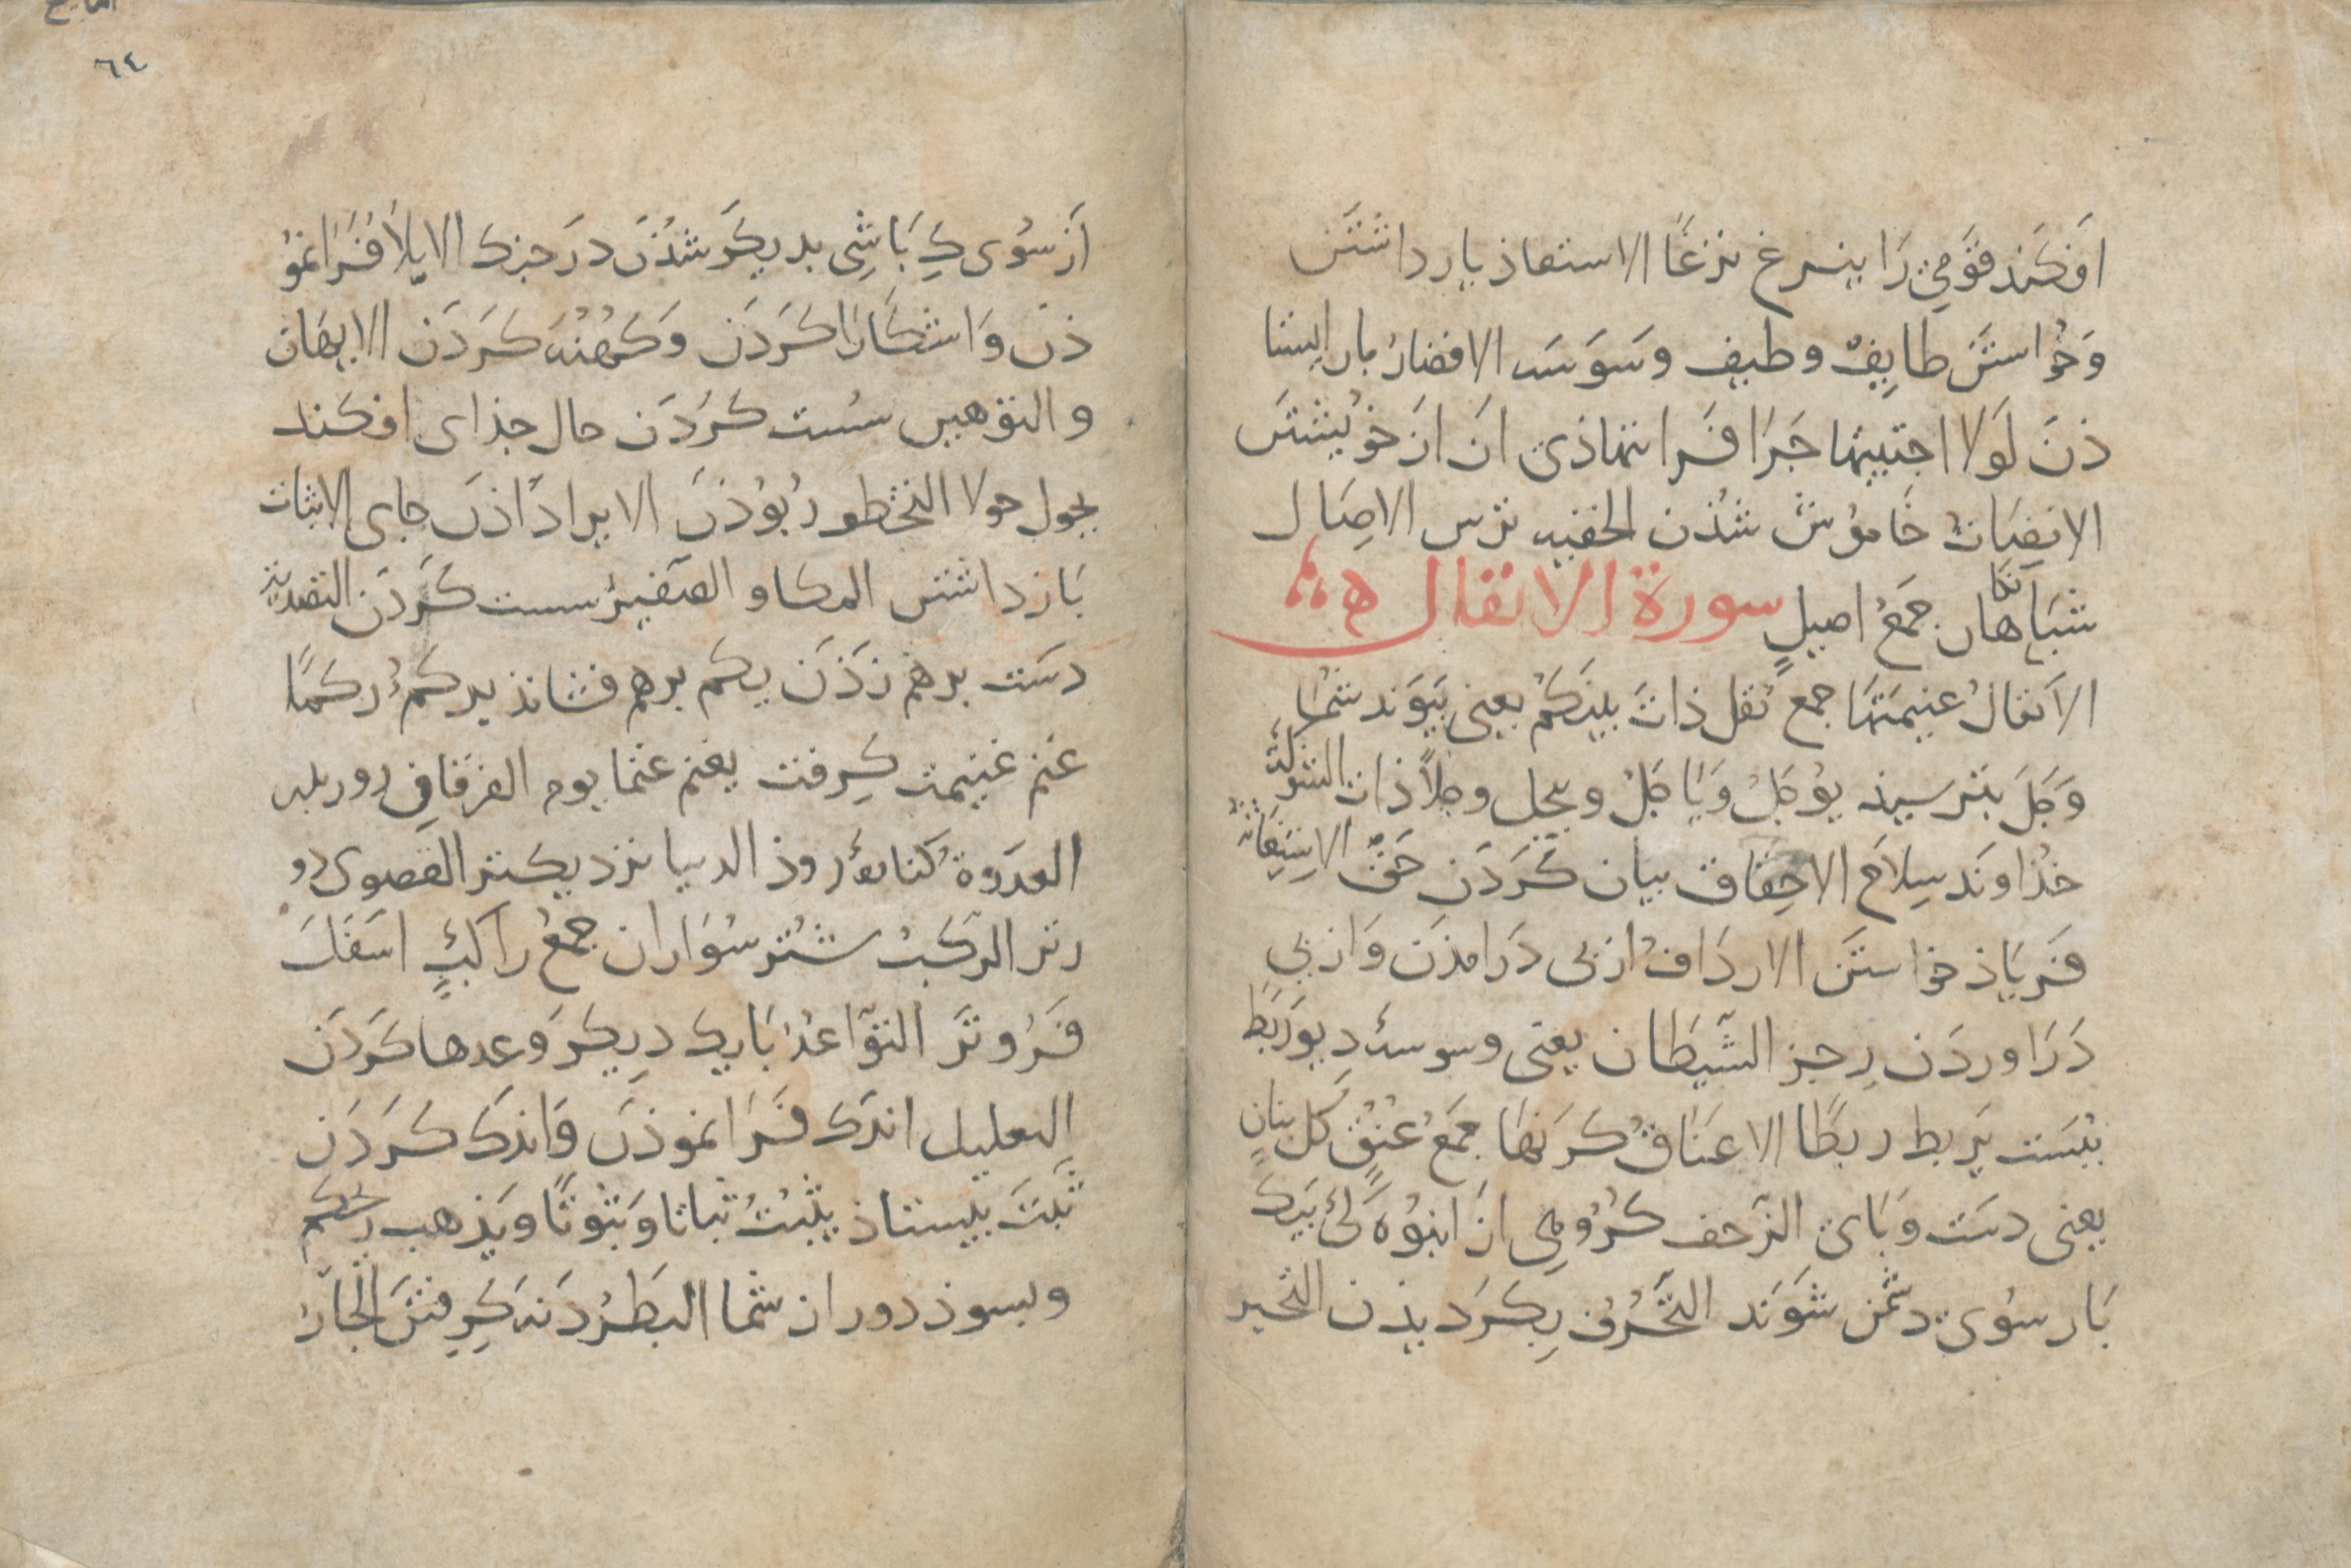 افکَند قَومی رَا ینزغ نزغًا الاستعاذ یارداشتَن
وَخُواستَن طایِفٌ وطیف وسَوسَه الاقصارُ بازایستا
ذن لَولا اجتبیتها چَرَا فَرانهاذی ان ازخویشتَن
الانصَاتُ خَاموُش شُذن الخفیه ترس الاصَال
شبَانگاهان جَمعُ اصیلٍ سورة الانفال
الاَنفالُ غنیمَتهَا جمع نفل ذاتَ بینکمُ یعنی پَیوَند شُما
وَجَلَ بترسیذ یَوُجَلُ وَیَاجَلُ ویجل وجلاً ذات الشوکة
خذاوند سِلاح الاحقاق بیان کَردَن حَقّ الاستغاثة
فَریَاذ خواستَن الاردَافُ ازپی دَرامذن وَازپی
دَرَاوردَن رِجز الشَّیطان یعنی وسوسۀ دیو رَبَطَ
ببَست یَربط ربطًا الاعنَاقُ کَردَنهَا جَمعُ عُنُقٍ کل بنانٍ
یعنی دسَت وَپَای الزّحف کُرُوهی ازَ انبُوه کَی بَیک
بَار سوُی دشمن شَوَند التَّحَرُّف بکَردیذن التحیز
اَز سُوی کِ بَاشِی بدیکَر شُذَن دَرَجزک الایلا فَرانموُ
ذن وَاشکارَا کَردَن وَکَهُنه کَردَن الایهَان
والتوهین سُست کَردَن حال جذای افکند
یحول حولا التخطّف ربوُذَن الایراد اذن جای الاثبات
بَازداشتَن المکا و الصَّفیرُ ست کَردَن التصدیة
دسَت برهم زَذَن یکم برهم فشانذ یرکمُ رکمًا
غَنِم غنیمت کِرفت یغنم غنما یوم الفرقان روز بدر
العدوَة کنارۀ روذ الدنیا نزدیکتر القصوی دو
رتر الرّکبُ شتُر سُوَاران جمعُ راکبٍ اسَفَلَ
فَروُتَر التوَّاعُد بَایک دِیکَر وعدها کَردَن
التقلیل اندک فَرانموذن وَاندک کَردَن
ثَبَتَ بیستاذ یثبُتُ ثباتا وَثبوُتًا ویَذهب ریحکم
وبسوذ دور از شما البَطَرُ دَنه کِرِفتَن الجَارُ
٦٤